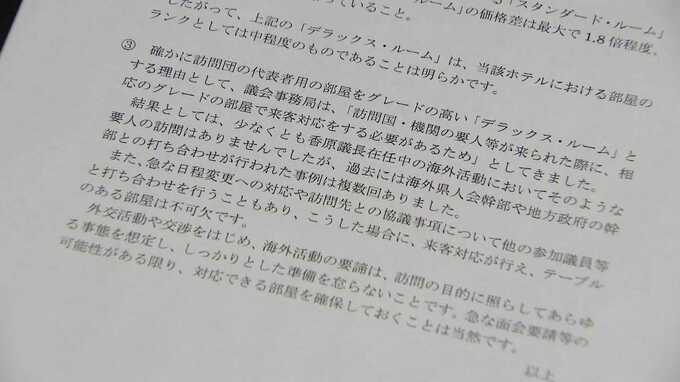 る「スタンダード・ルーム」
ルーム」の価格差は最大で1.8倍程度、
っていること。
したがって、上記の「デラックス・ルーム」は、当該ホテルにおける部屋の
ランクとしては中程度のものであることは明らかです。
③ 確かに訪問団の代表者用の部屋をグレードの高い「デラックス・ルーム」と
する理由として、議会事務局は、「訪問国・機関の要人等が来られた際に、相
応のグレードの部屋で来客対応をする必要があるため」としてきました。
結果としては、少なくとも香原議長在任中の海外活動においてそのような
要人の訪問はありませんでしたが、過去には海外県人会幹部や地方政府の幹
部との打ち合わせが行われた事例は複数回ありました。
また、急な日程変更への対応や訪問先との協議事項について他の参加議員等
と打ち合わせを行うこともあり、こうした場合に、来客対応が行え、テーブル
のある部屋は不可欠です。
外交活動や交渉をはじめ、海外活動の要諦は、訪問の目的に照らしてあらゆ
る事態を想定し、しっかりとした準備を怠らないことです。急な面会要請等の
可能性がある限り、対応できる部屋を確保しておくことは当然です。
以上